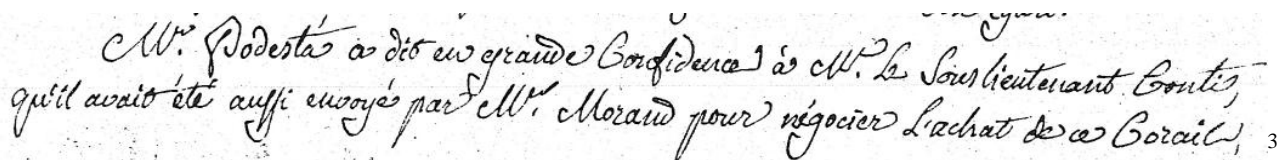 Mr. Podestà a dit en grande Confidence à Mr. Le Souslieutenant Conti,
qu'il avait été aussi envoyé par Mr. Morand pour négocier L'achat de ce Corail,
3